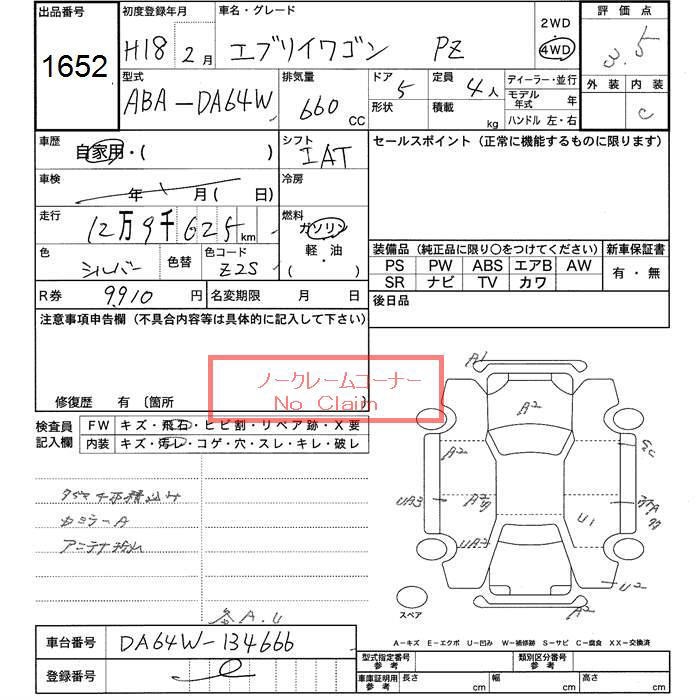 出品番号 初度登録年月 車名・グレード 2WD 評価点
1652 H18 2月 エブリイワゴン PZ 4WD 3.5
型式 排気量 ドア 5 定員 4人 ディーラー・並行 外装 内装
ABA-DA64W 660 CC 形状 積載 kg モデル年式 年 C
ハンドル 左・右
車歴 自家用・( ) シフト IAT セールスポイント(正常に機能するものに限ります)
車検 年 月( 日) 冷房
走行 12万9千625km 燃料 ガソリン
軽・油
・( )
色 シルバー 色替 色コード Z2S
装備品(純正品に限り○をつけてください) 新車保証書
PS PW ABS エアB AW 有・無
SR ナビ TV カワ
R券 9,910円 名変期限 月 日 後日品
注意事項申告欄(不具合内容等は具体的に記入して下さい)
ノークレームコーナー
No Claim
修復歴 有 〔箇所
検査員記入欄 FW キズ・飛石・ヒビ割・リペア跡・X要
内装 キズ・汚レ・コゲ・穴・スレ・キレ・破レ
カミラーA
アンテナ
各A.U
A1
A2
A2
UA3
A2
UA3
U1
U2
A2
スペア
車台番号 DA64W-134666
登録番号
A-キズ E-エクボ U-凹み W-補修跡 S-サビ C-腐食 XX-交換済
型式指定番号 参考 類別区分番号 参考
車庫証明用 参考 長さ cm 幅 cm 高さ cm